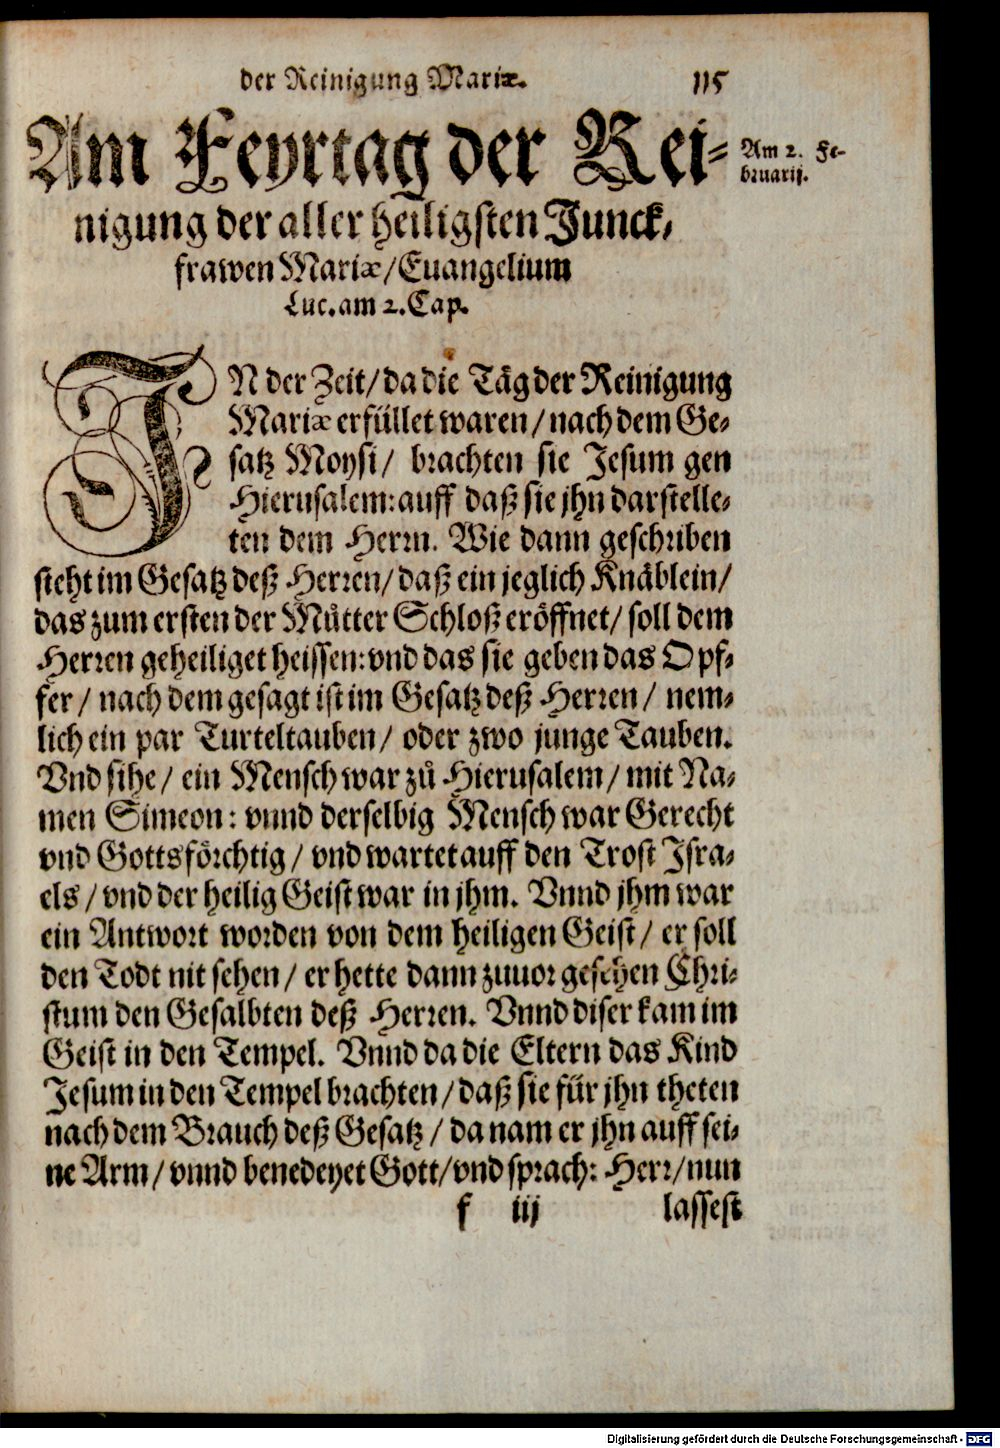 der Reinigung Mariæ. 115
Am Feyrtag der Rei-
nigung der aller heiligsten Junck-
frawen Mariæ/Euangelium
Luc. am 2. Cap.
Am 2. Fe-
bruarij.
IN der Zeit/da die Täg der Reinigung
Mariæ erfüllet waren/nach dem Ge-
satz Moysi/ brachten sie Jesum gen
Hierusalem: auff daß sie jhn darstelle-
ten dem Herrn. Wie dann geschriben
steht im Gesatz deß Herren/daß ein jeglich Knäblein/
das zum ersten der Mütter Schloß eröffnet/soll dem
Herren geheiliget heissen: vnd das sie geben das Opf-
fer/nach dem gesagt ist im Gesatz deß Herren/ nem-
lich ein par Turteltauben/ oder zwo junge Tauben.
Vnd sihe/ ein Mensch war zů Hierusalem/mit Na-
men Simeon: vnnd derselbig Mensch war Gerecht
vnd Gottsförchtig/vnd wartet auff den Trost Jsra-
els/vnd der heilig Geist war in jhm. Vnnd jhm war
ein Antwort worden von dem heiligen Geist/ er soll
den Todt nit sehen/er hette dann zuuor gesehen Chri-
stum den Gesalbten deß Herren. Vnnd diser kam im
Geist in den Tempel. Vnnd da die Eltern das Kind
Jesum in den Tempel brachten/daß sie für jhn theten
nach dem Brauch deß Gesatz/da nam er jhn auff sei-
ne Arm/vnnd benedeyet Gott/vnd sprach: Herr/nun
f iij lassest
Digitalisierung gefördert durch die Deutsche Forschungsgemeinschaft - DFG